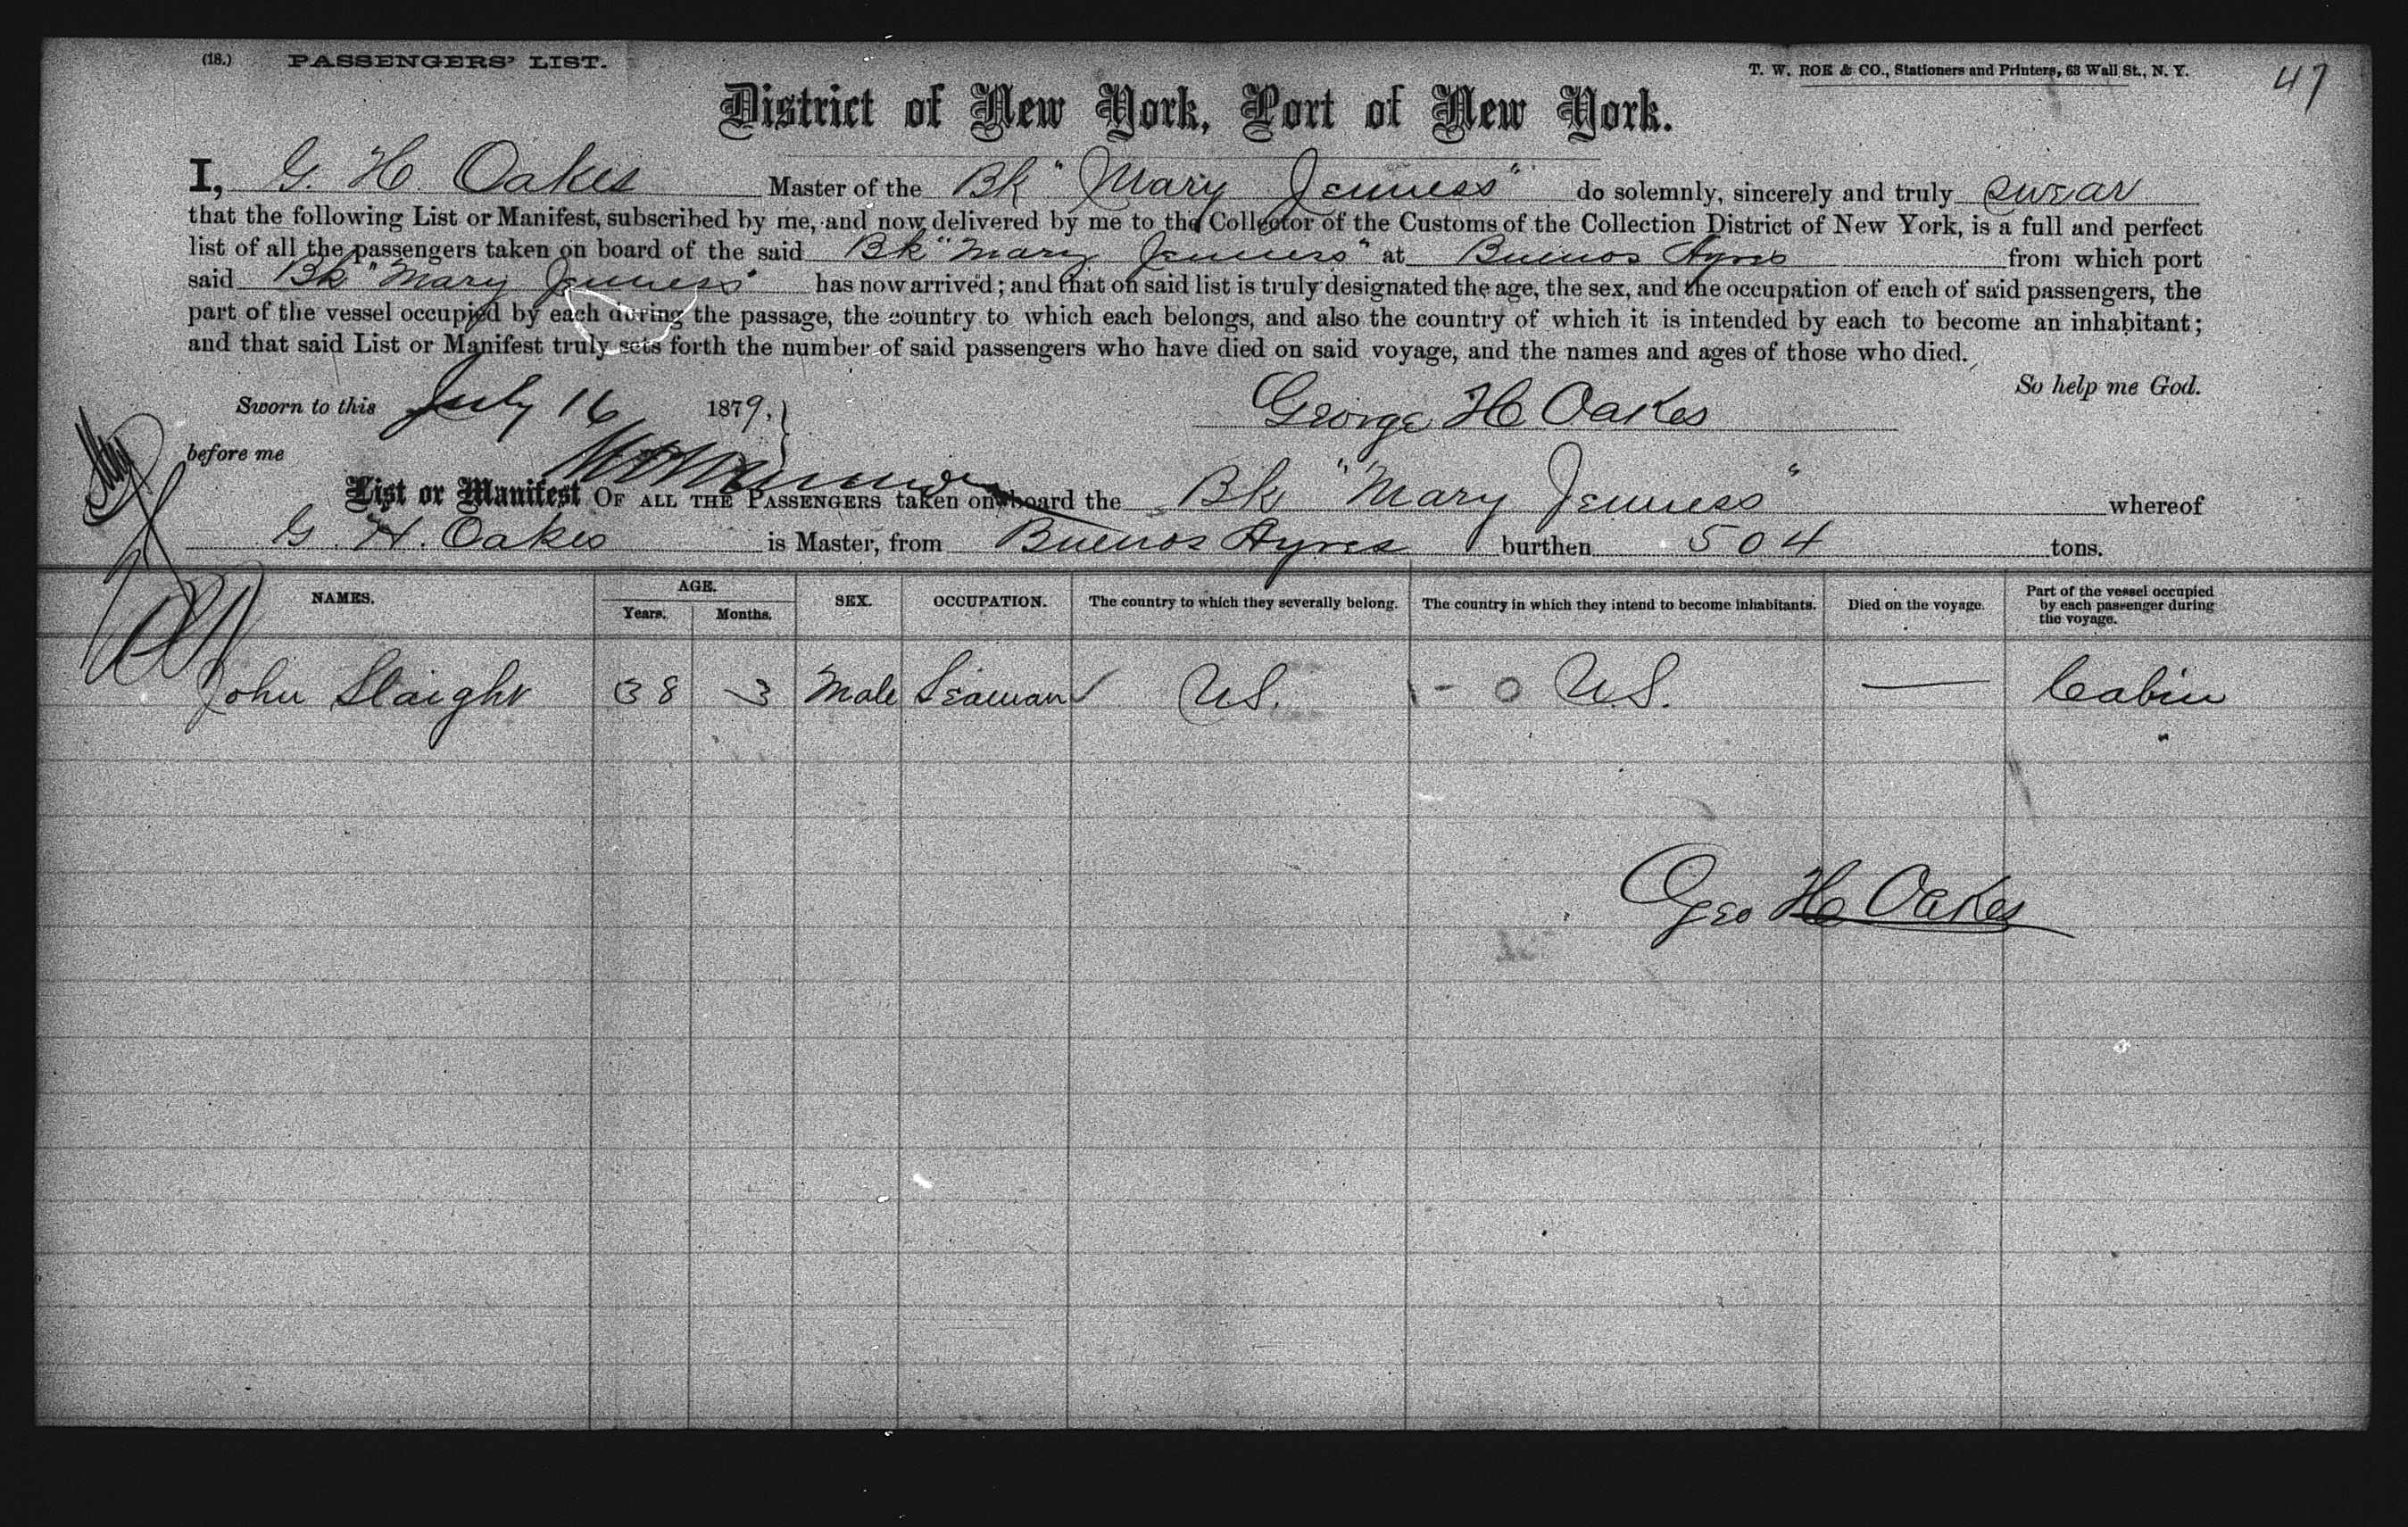 (18.) PASSENGERS' LIST.
T. W. ROE & CO., Stationers and Printers, 63 Wall St., N. Y.
47
District of New York, Port of New York.
I, G. H Oakes Master of the Bk "Mary Jenness" do solemnly, sincerely and truly swear
that the following List or Manifest, subscribed by me, and now delivered by me to the Collector of the Customs of the Collection District of New York, is a full and perfect
list of all the passengers taken on board of the said Bk "Mary Jenness" at Buenos Ayres from which port
said Bk "Mary Jenness" has now arrived; and that on said list is truly designated the age, the sex, and the occupation of each of said passengers, the
part of the vessel occupied by each during the passage, the country to which each belongs, and also the country of which it is intended by each to become an inhabitant;
and that said List or Manifest truly sets forth the number of said passengers who have died on said voyage, and the names and ages of those who died.
So help me God.
Sworn to this July 16 1879,
George H Oakes
before me
List or Manifest OF ALL THE PASSENGERS taken on board the Bk "Mary Jenness" whereof
G. H. Oakes is Master, from Buenos Ayres burthen 504 tons.
NAMES. AGE. Years. Months. SEX. OCCUPATION. The country to which they severally belong. The country in which they intend to become inhabitants. Died on the voyage. Part of the vessel occupied by each passenger during the voyage.
John Slaight 38 3 Male Seaman U.S. U.S. — Cabin
Geo H Oakes